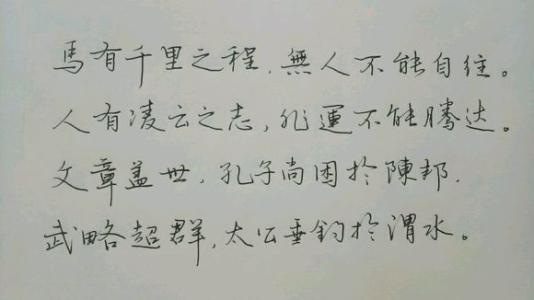 馬有千里之程，無人不能自往。
人有凌云之志，非運不能騰达。
文章盖世，孔子尚困於陳邦，
武略超群，太公垂钓於渭水。